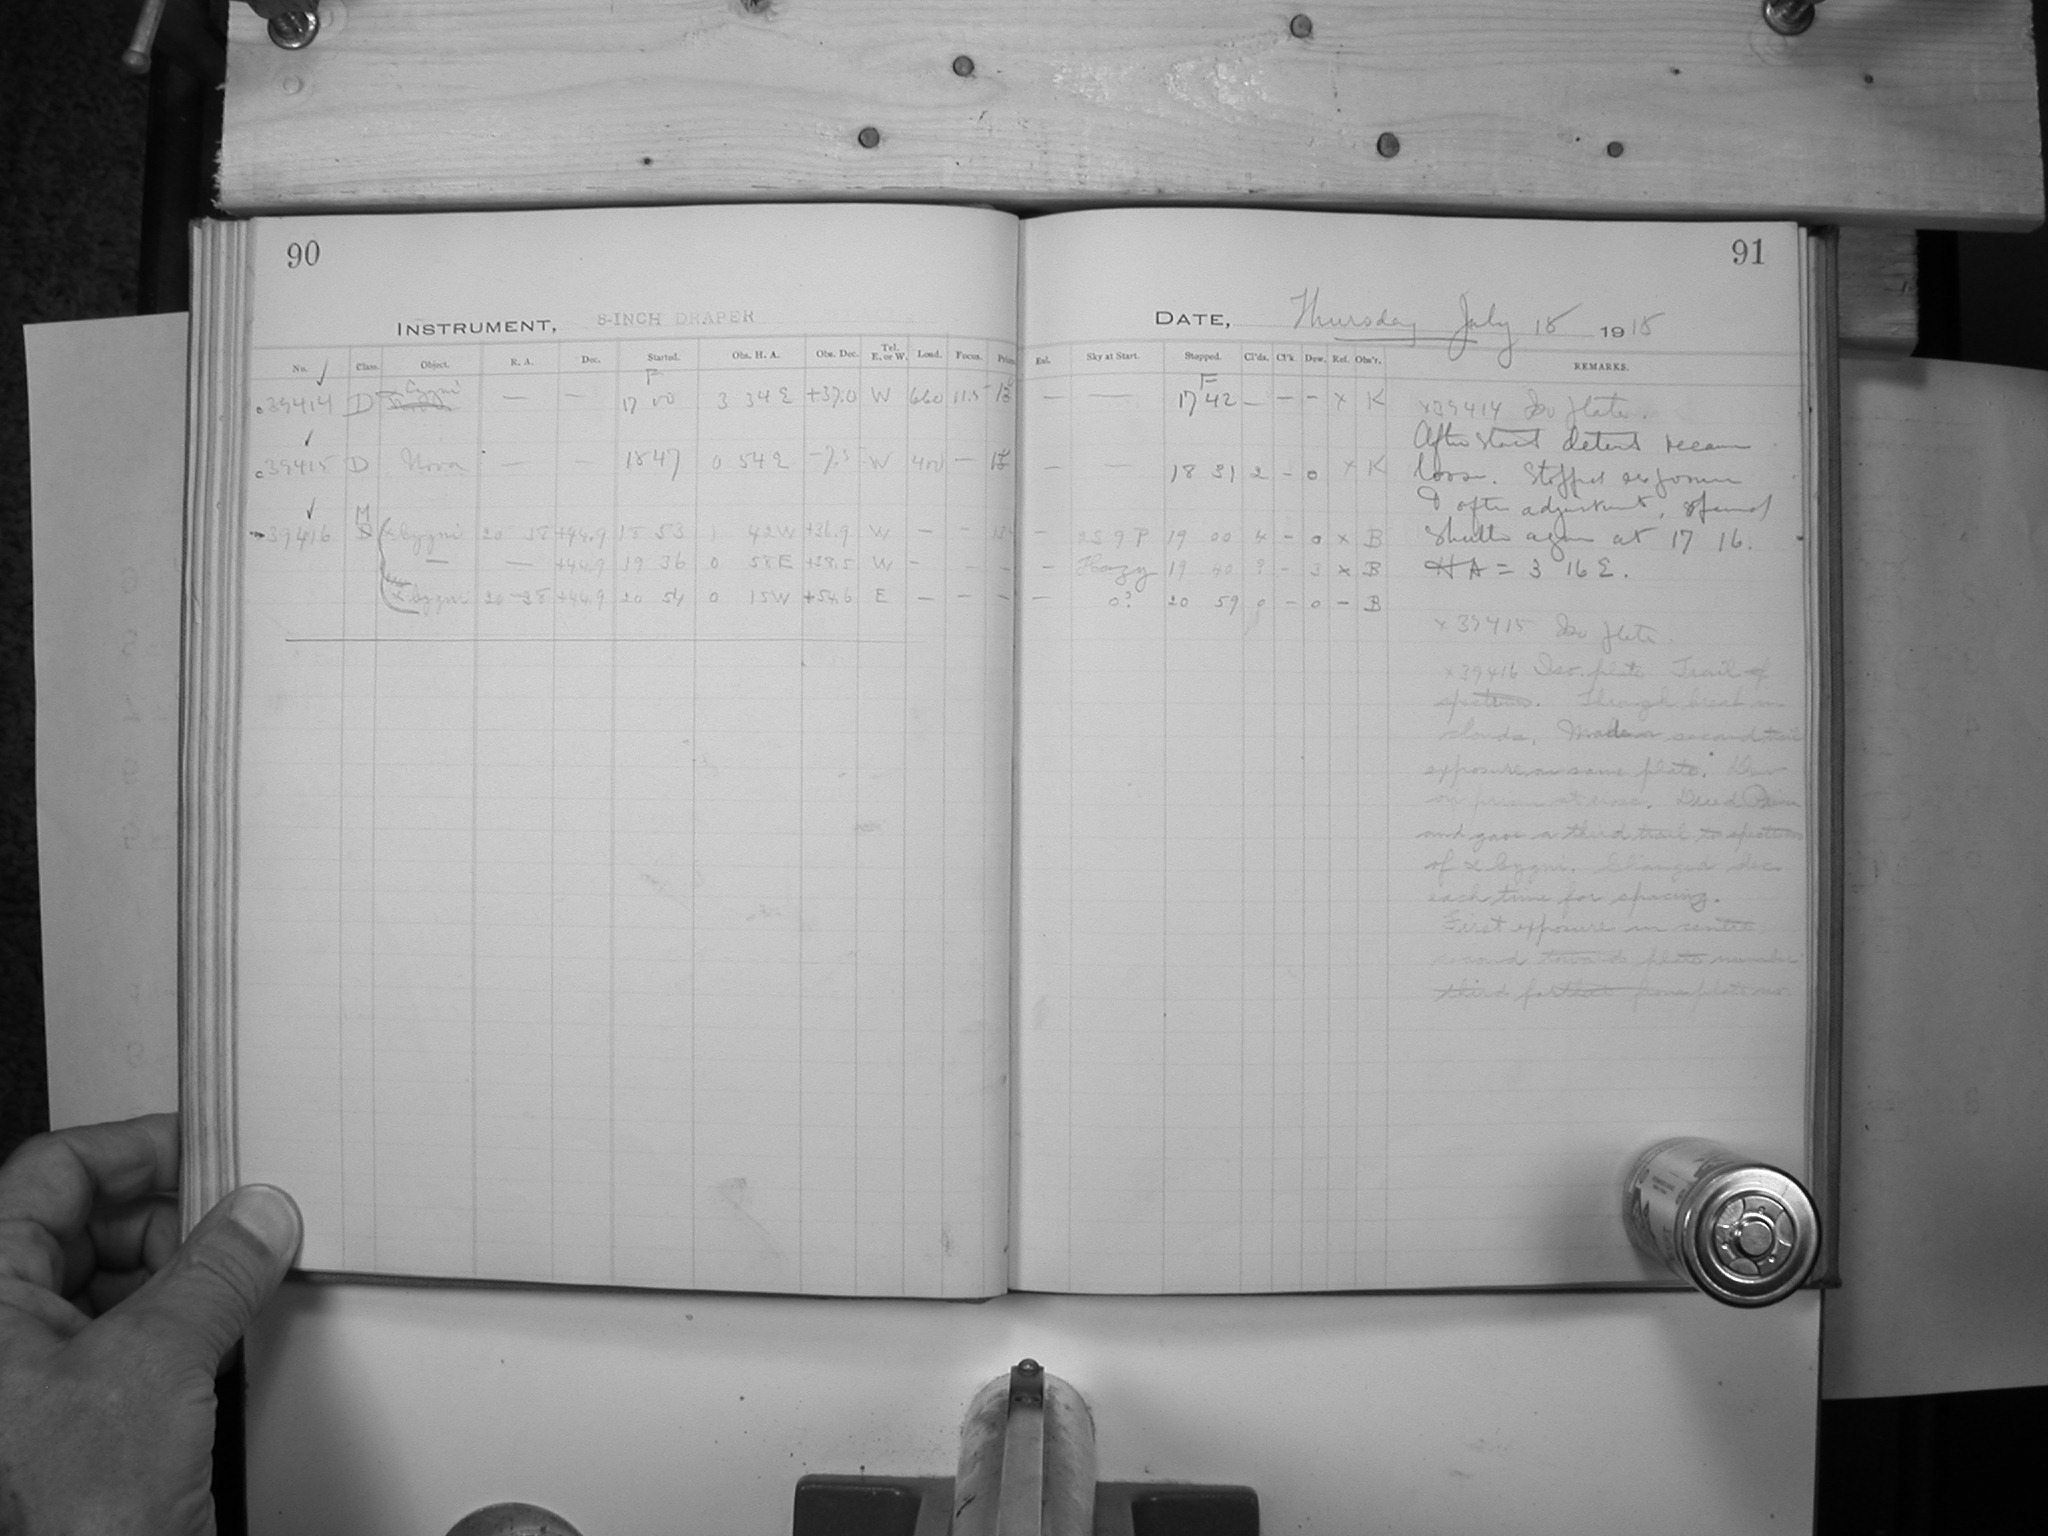 90
INSTRUMENT, 8-INCH DRAPER
No. Class. Object. R. A. Dec. Started. Obs. H. A. Obs. Dec. Tel. E. or W. Load. Focus.
39414 D Cygni — — F 17 00 3 34 E +37.0 W 660 11.5
39415 D Nova — — 18 47 0 54 E W 400 —
39416 M α Cygni 20 38 +44.9 18 53 1 42 W +36.9 W — —
— — +44.9 19 36 0 58 E +38.5 W — —
α Cygni 20 38 +44.9 20 54 0 15 W +54.6 E — — —
91
DATE, Thursday July 18 1918
Sky at Start. Stopped. Cl'ds. Cl'k. Dew. Rel. Obs'r. REMARKS.
— — F 17 42 — — — x K
— — 18 31 2 - 0 x K
— 2S 9 P 19 00 4 - 0 x B
— Hazy 19 40 ? - 3 x B
— 0? 20 59 0 - 0 - B
x39414 Iso plate.
After start detent became
loose. Stopped exposure
& after adjustment, opened
Shutter again at 17 16.
HA = 3 16 E.
x 39415 Iso plate.
x39416 Iso. plate Trail of
spectrum. Through break in
clouds, Made a second trail
exposure on same plate. Dew
on prism at close. Dried Prism
and gave a third trail to spectrum
of α Cygni. Changed dec.
each time for spacing.
First exposure in centre
second towards plate number
third farthest from plate no.